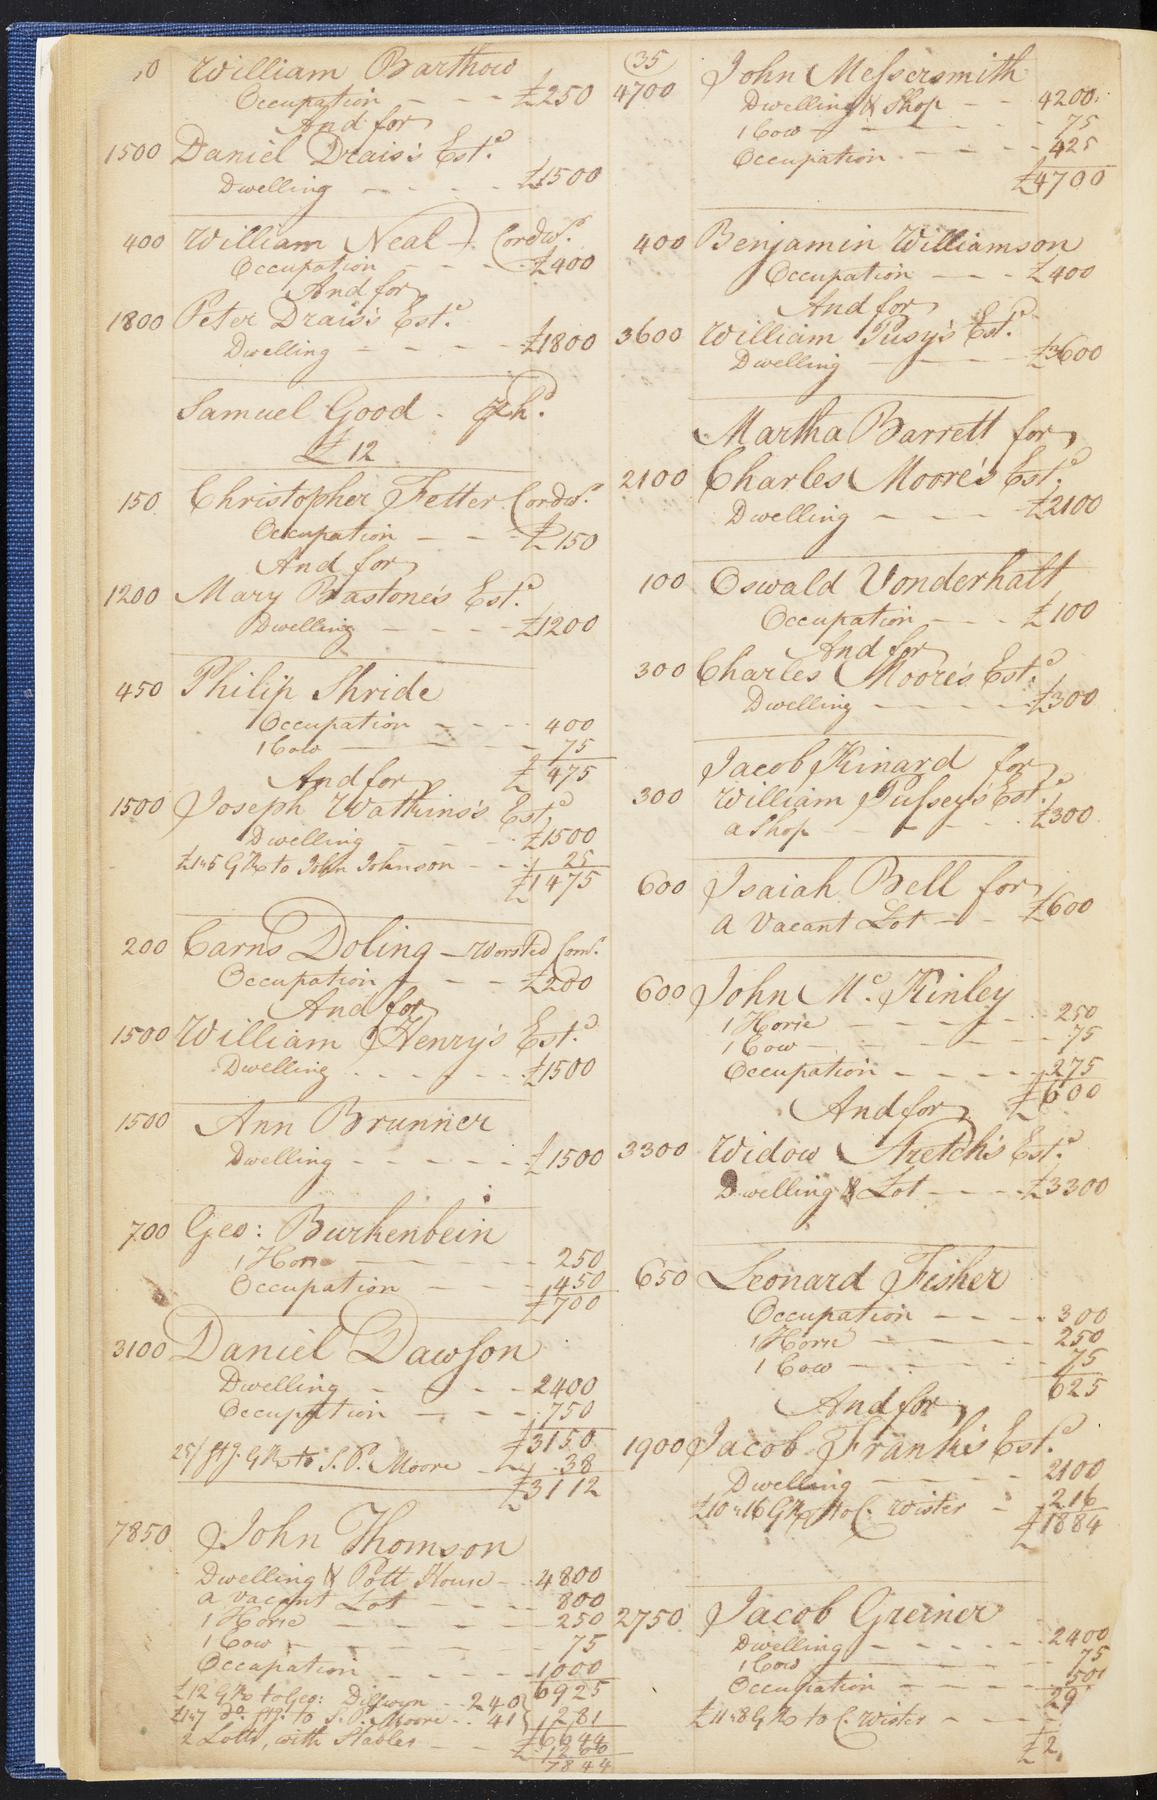 William Barthow
Occupation - - - £250
And for
1500 Daniel Drais's Estd.
Dwelling - - - - £1500
400 William Neal Cordwr.
Occupation - - - £400
And for
1800 Peter Drais's Estd.
Dwelling - - - - £1800
Samuel Good
£12
150 Christopher Fetter Cordwr.
Occupation - - - £150
And for
1200 Mary Bastone's Estd.
Dwelling - - - - £1200
450 Philip Shride
Occupation - - - - 400
1 Cow - - - 75
£475
And for
1500 Joseph Watkins's Estd.
Dwelling - - - £1500
£1"5 GRt to John Johnson - - 25
£1475
200 Carns Doling - Worsted Comr.
Occupation - - - £200
And for
1500 William Henry's Estd.
Dwelling - - - - £1500
1500 Ann Brunner
Dwelling - - - - - £1500
700 Geo: Burkenbein
1 Horse - - - - - 250
Occupation - - - 450
£700
3100 Daniel Dawson
Dwelling - - - - 2400
Occupation - - - 750
£3150
25/ stg. GRt to S. P. Moore - 38
£3112
7850 John Thomson
Dwelling & Pott House - - 4800
a vacant Lot - - - - 800
1 Horse - - - - - 250
1 Cow - - - - - 75
Occupation - - - - - 1000
6925
£12 GRt to Geo: Dillwyn - - 240
£1"7 do. stg. to S. P. Moore - - 41 } 281
£6644
2 Lotts, with Stables - - 1200
£7844
35
4700 John Messersmith
Dwelling & Shop - - 4200
1 Cow - - - - - 75
Occupation - - - - 425
£4700
400 Benjamin Williamson
Occupation - - - £400
And for
3600 William Pusy's Estd.
Dwelling - - - £3600
Martha Barrett for
2100 Charles Moore's Estd.
Dwelling - - - - £2100
100 Oswald Vonderhalt
Occupation - - - £100
And for
300 Charles Moore's Estd.
Dwelling - - - - - £300
Jacob Kinard for
300 William Pussey's Estd.
a Shop - - - - £300
600 Isaiah Bell for
a Vacant Lot - - £600
600 John Mc. Kinley
1 Horse - - - - - 250
1 Cow - - - - - 75
Occupation - - - - 275
£600
And for
3300 Widow Stretch's Estd.
Dwelling & Lot - - - £3300
650 Leonard Fisher
Occupation - - - - 300
1 Horse - - - - 250
1 Cow - - - - - 75
625
And for
1900 Jacob Frank's Estd.
Dwelling - - - - 2100
£10"16 GRt to C. Wister - 216
£1884
2750 Jacob Greiner
Dwelling - - - - - 2400
1 Cow - - - - - 75
Occupation - - - - 50
29
£11"8 GRt to C. Wister - - -
£2